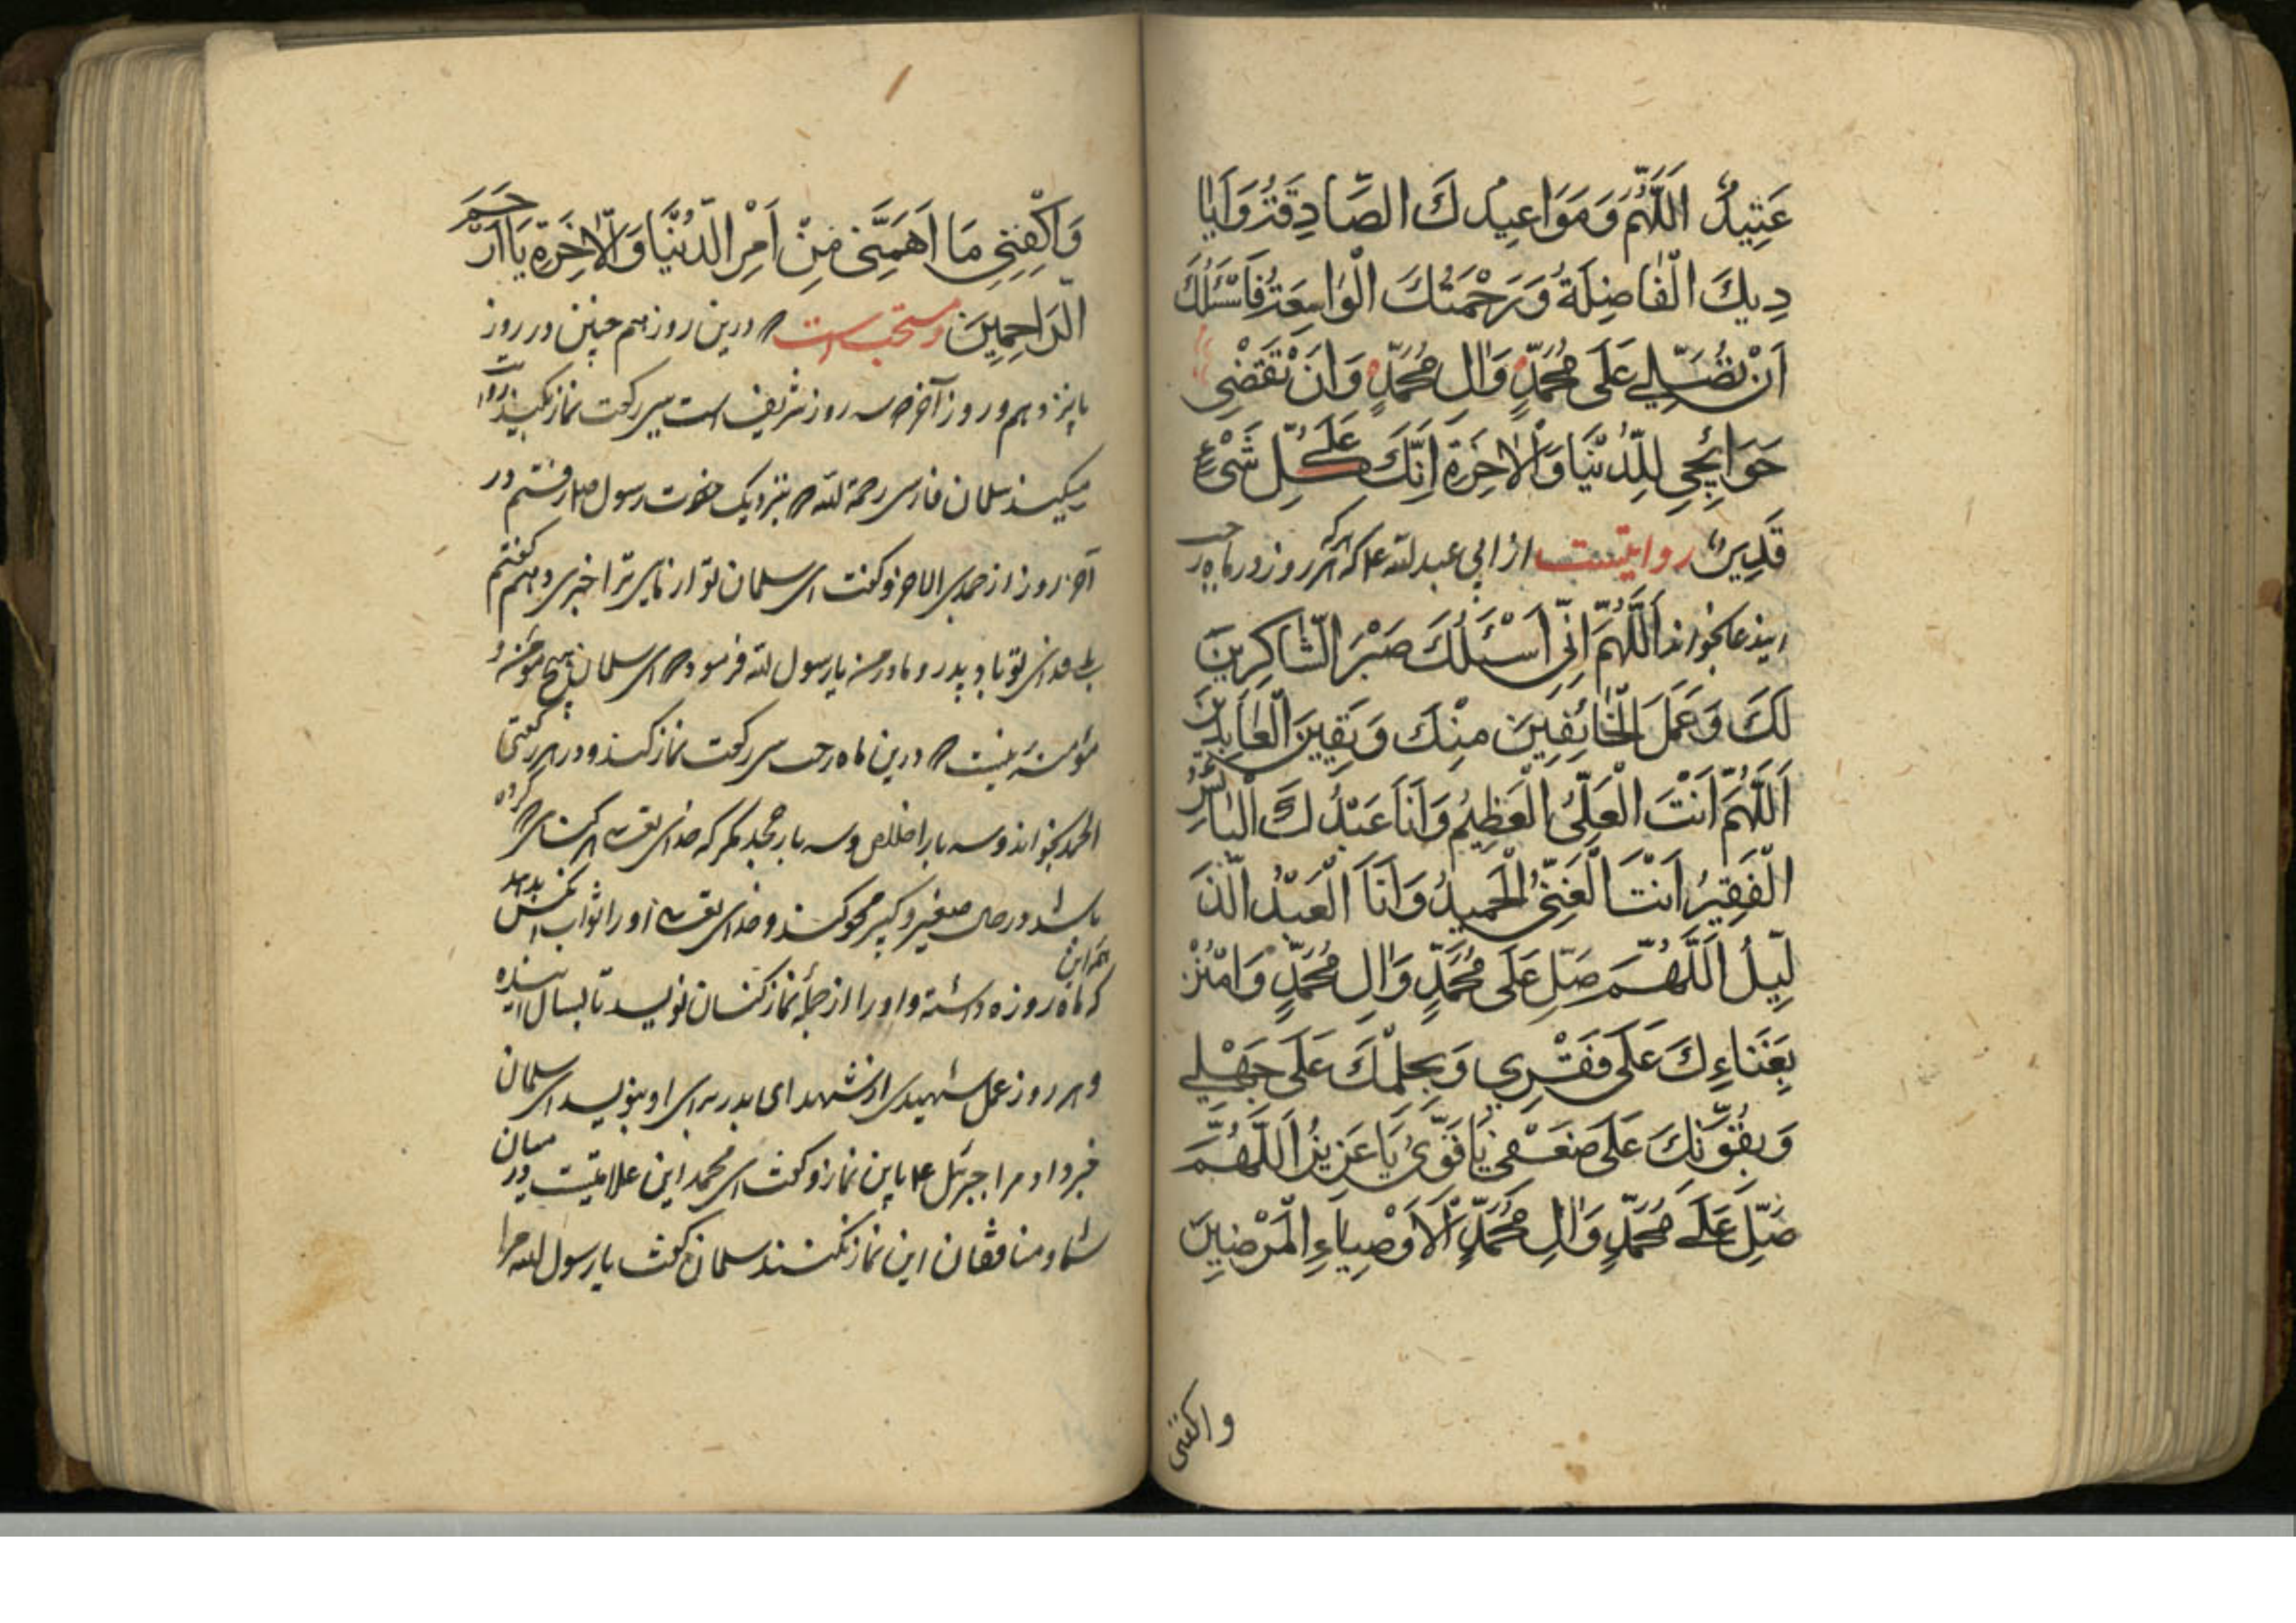 عَتِيدٌ اَللّٰهُمَّ وَمَوَاعِيدُكَ الصَّادِقَةُ وَاَيَا
دِيكَ الْفَاضِلَةُ وَرَحْمَتُكَ الْوَاسِعَةُ فَاَسْئَلُكَ
اَنْ تُصَلِّيَ عَلَى مُحَمَّدٍ وَاٰلِ مُحَمَّدٍ وَاَنْ تَقْضِيَ
حَوَائِجِي لِلدُّنْيَا وَالْاٰخِرَةِ اِنَّكَ عَلَى كُلِّ شَيْءٍ
قَدِيرٌ روایتست از ابی عبدالله ع که هر که هر روز در ماه رجب
این دعا بخواند اَللّٰهُمَّ اِنِّي اَسْئَلُكَ صَبْرَ الشَّاكِرِينَ
لَكَ وَعَمَلَ الْخَائِفِينَ مِنْكَ وَيَقِينَ الْعَابِدِينَ
اَللّٰهُمَّ اَنْتَ الْعَلِيُّ الْعَظِيمُ وَاَنَا عَبْدُكَ الْبَائِسُ
الْفَقِيرُ اَنْتَ الْغَنِيُّ الْحَمِيدُ وَاَنَا الْعَبْدُ الذَّ
لِيلُ اَللّٰهُمَّ صَلِّ عَلَى مُحَمَّدٍ وَاٰلِ مُحَمَّدٍ وَامْنُنْ
بِغَنَاءِكَ عَلَى فَقْرِي وَبِحِلْمِكَ عَلَى جَهْلِي
وَبِقُوَّتِكَ عَلَى ضَعْفِي يَا قَوِيُّ يَا عَزِيزُ اَللّٰهُمَّ
صَلِّ عَلَى مُحَمَّدٍ وَاٰلِ مُحَمَّدٍ الْاَوْصِيَاءِ الْمَرْضِيِّينَ
واکفنی
وَاكْفِنِي مَا اَهَمَّنِي مِنْ اَمْرِ الدُّنْيَا وَالْاٰخِرَةِ يَا اَرْحَمَ
الرَّاحِمِينَ و مستحب است درین روز هم چنین در روز
پانزدهم و روز آخر سه روز شریف است سی رکعت نماز بکنید روایت
میکند سلمان فارسی رحمة الله بنزدیک حضرت رسول رفتم در
آخر روز از جمدی الاخر و گفت ای سلمان تو از نایی ترا خبری دهم گفتم
بلی فدای تو باد پدر و مادر من یا رسول الله فرمود ای سلمان هیچ مؤمن و
مؤمنه نیست درین ماه رجب سی رکعت نماز کند و در هر رکعتی
الحمد بخواند و سه بار اخلاص و سه بار جحد مگر که خدای تع هر گناهی کرده
باشد در حال صغیر و کبیر محو کند و خدای تع او را ثواب کس بدهد
که همه این ماه روزه داشته و او را از جملهٔ نماز کنان نویسد تا بسال آینده
و هر روز عمل شهیدی از شهدای بدر برای او بنویسد ای سلمان
خبر داد مرا جبرئیل ع باین نماز و گفت ای محمد این علامتیست در میان
شما و منافقان این نماز نکنند سلمان گفت یا رسول الله مرا